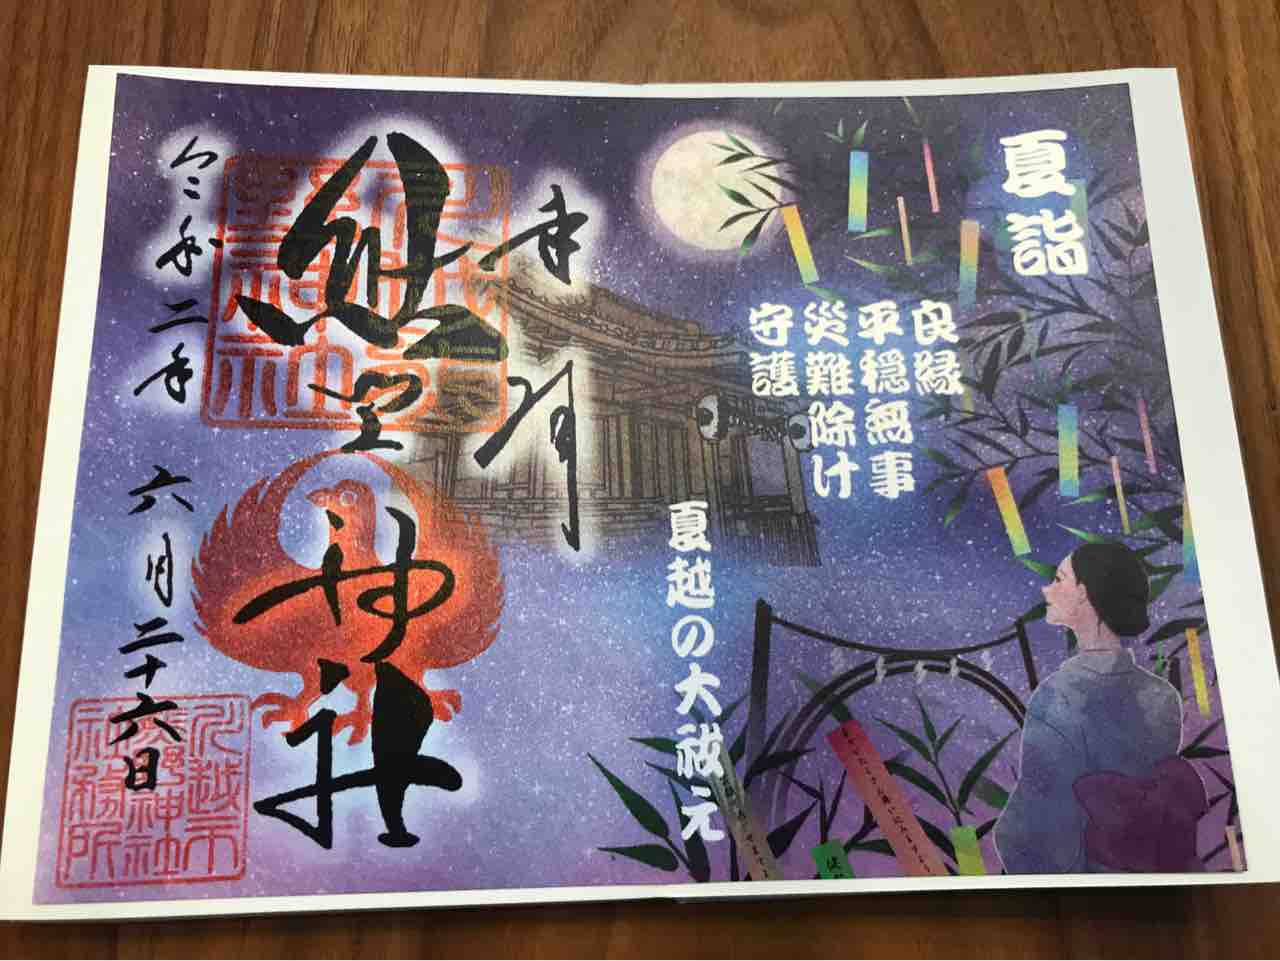 夏詣
良縁
平穏無事
災難除け
守護
夏越の大祓え
奉拝
熊野神社
令和二年 六月二十六日
川越市
熊野神社
社務所